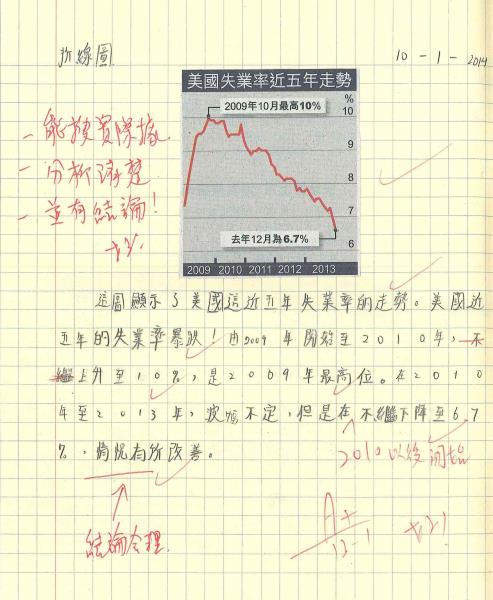 折線圖
10 - 1 - 2014
美國失業率近五年走勢
2009年10月最高10%
%
10
9
8
7
6
去年12月為6.7%
2009 2010 2011 2012 2013
- 能按實際據
- 分析清楚
- 並有結論!
這圖顯示了美國這近五年失業率的走勢。美國近
五年的失業率暴跌!由2009年開始至2010年,不
繼上升至10%,是2009年最高位。在2010
年至2013年,波幅不定,但是在不繼下降至6.7
%,情況有所改善。
2010以後開始
結論合理
A+
12-1